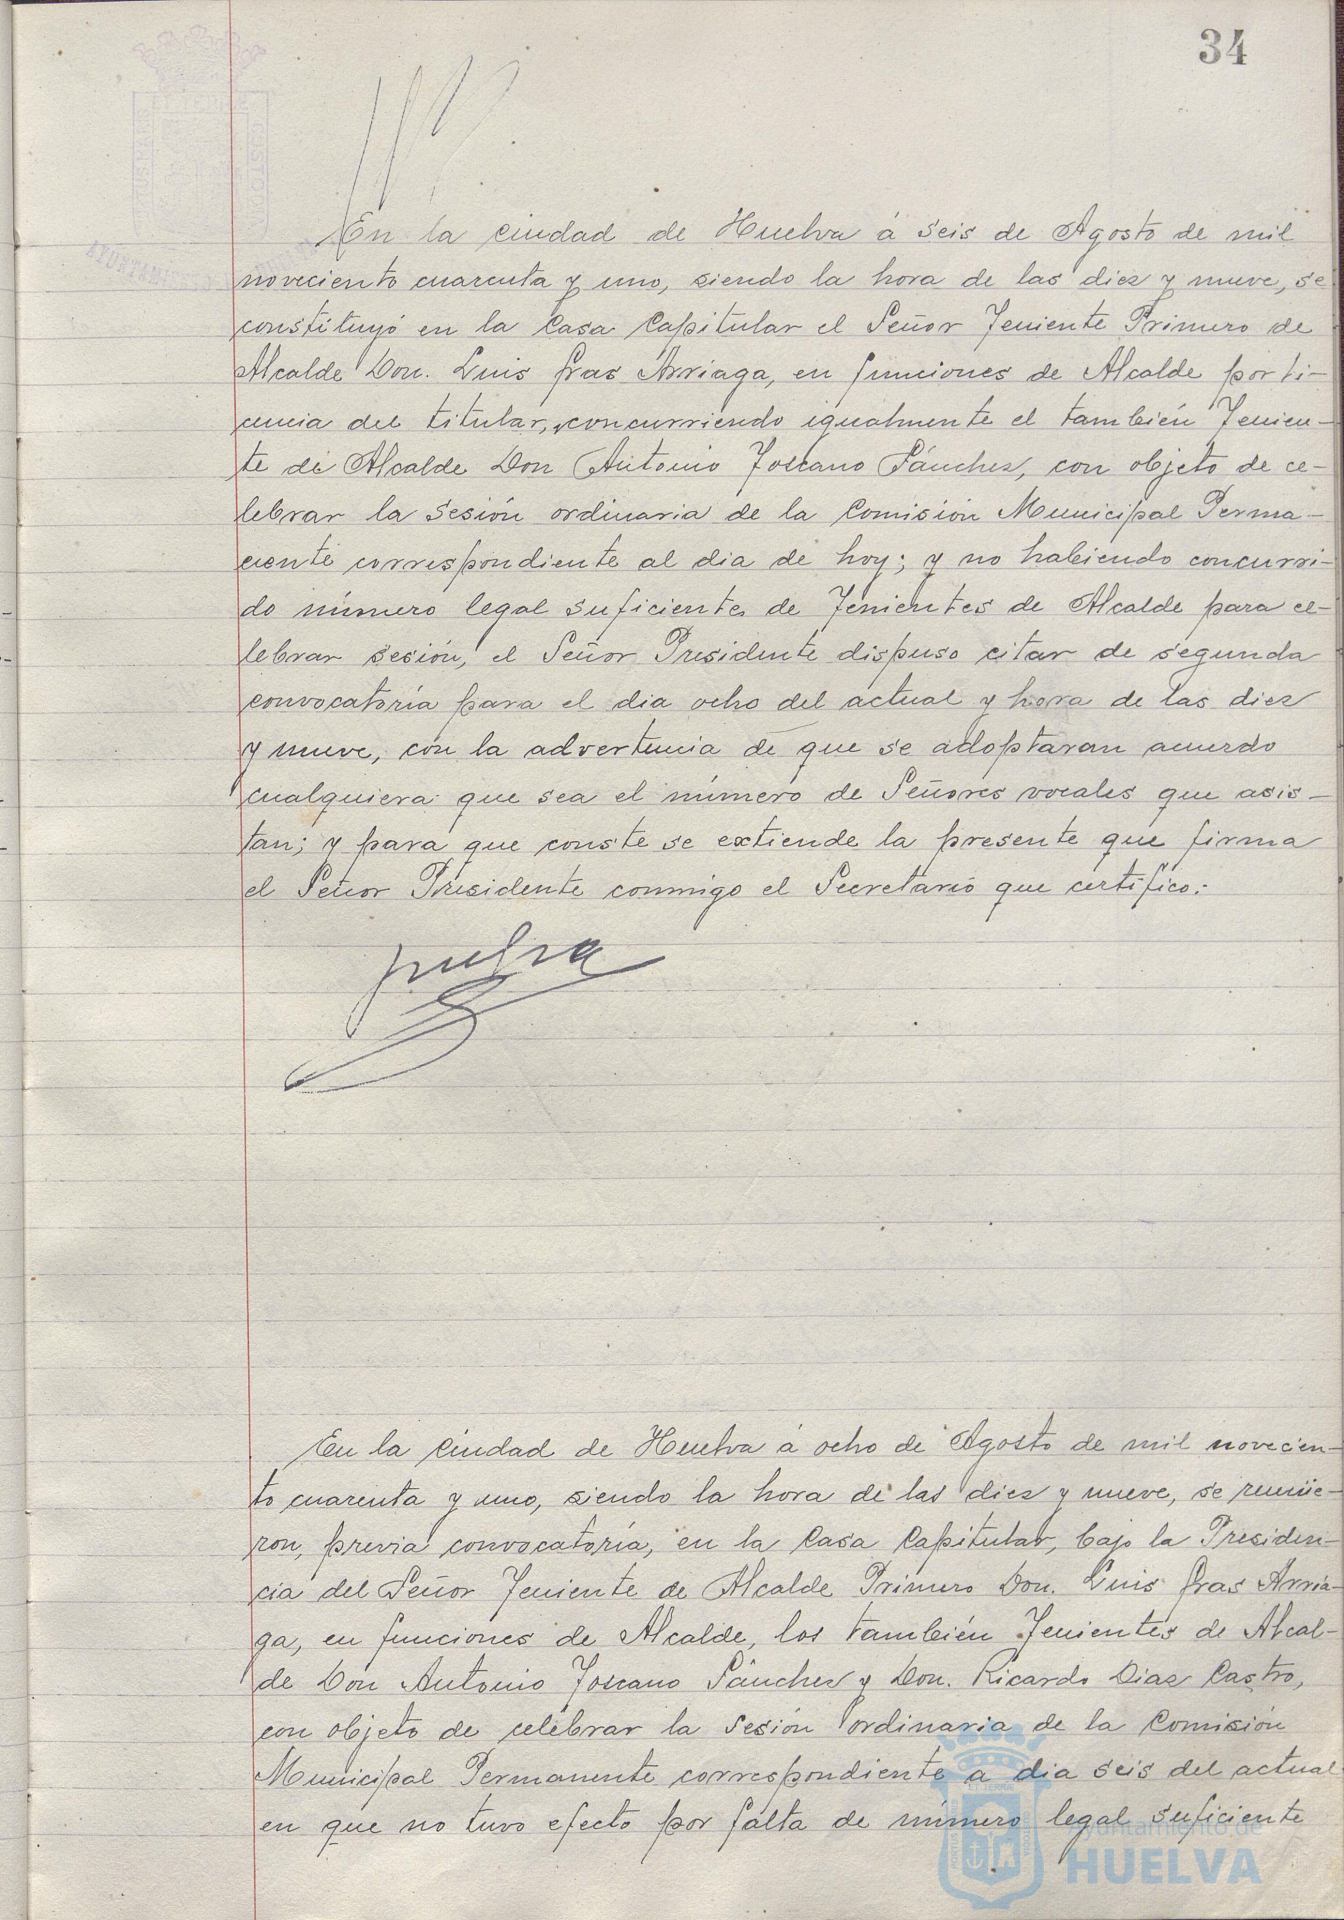 34
PORTUS MARIS ET TERRE CUSTODIA
En la ciudad de Huelva á seis de Agosto de mil
noveciento cuarenta y uno, siendo la hora de las diez y nueve, se
constituyó en la Casa Capitular el Señor Teniente Primero de
Alcalde Don. Luis Gras Arriaga, en funciones de Alcalde por li-
cencia del titular, concurriendo igualmente el también Tenien-
te de Alcalde Don Antonio Toscano Sánchez, con objeto de ce-
lebrar la sesión ordinaria de la Comisión Municipal Perma-
nente correspondiente al dia de hoy; y no habiendo concurri-
do número legal suficiente de Tenientes de Alcalde para ce-
lebrar sesión, el Señor Presidente dispuso citar de segunda
convocatoría para el dia ocho del actual y hora de las diez
y nueve, con la advertencia de que se adoptaran acuerdo
cualquiera que sea el número de Señores vocales que asis-
tan; y para que conste se extiende la presente que firma
el Señor Presidente conmigo el Secretario que certifico:-
En la Ciudad de Huelva á ocho de Agosto de mil novecien-
to cuarenta y uno, siendo la hora de las diez y nueve, se reunie-
ron, previa convocatoría, en la Casa Capitular, bajo la Presiden-
cia del Señor Teniente de Alcalde Primero Don. Luis Gras Arria-
ga, en funciones de Alcalde, los también Tenientes de Alcal-
de Don Antonio Toscano Sánchez y Don. Ricardo Diaz Castro,
con objeto de celebrar la sesión ordinaria de la Comisión
Municipal Permanente correspondiente a dia seis del actual
en que no tuvo efecto por falta de número legal suficiente
Ayuntamiento de
HUELVA